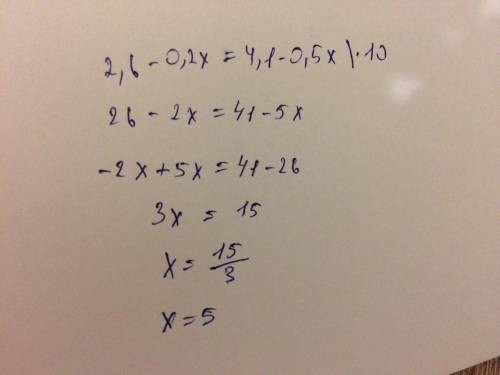 2,6 - 0,2x = 4,1 - 0,5x \ · 10
26 - 2x = 41 - 5x
-2x + 5x = 41 - 26
3x = 15
x = 15/3
x = 5